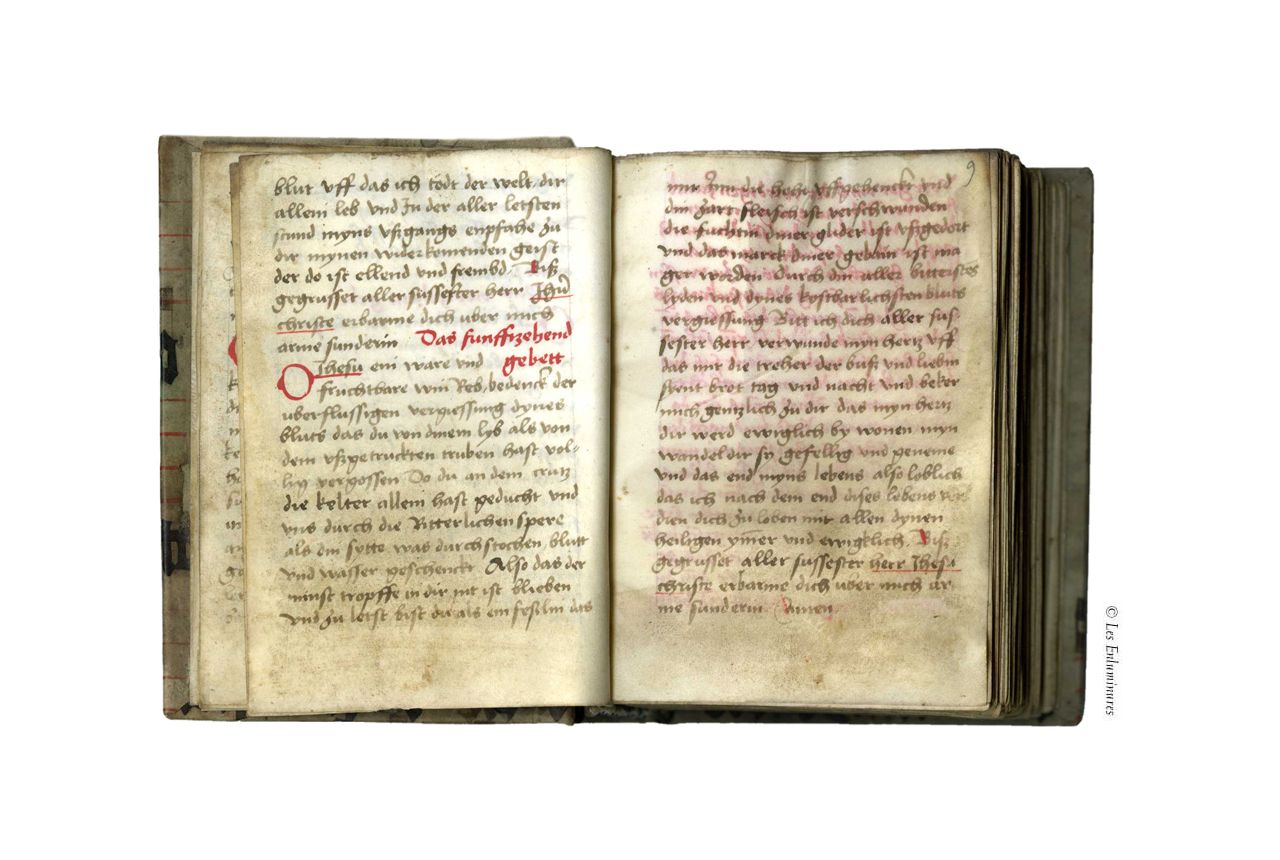 blut uff das ich tödt der welt dir
allein leb und Jn der aller letsten
stund myns ußgangs enpfahe zu
dir mynen widerkomenden geist
der do ist ellend und frembd. Biß
gegrusset aller sussester herr Jhū
christe erbarme dich uber mich
arme sunderin Das funffzehend
gebett
O Jhesu ein ware und
fruchtbare win Reb bedenck der
uberflussigen vergiessung dynes
bluts das du von dinem lyb als von
dem ußgetruckten truben hast vol-
lig vergossen Do du an dem crutz
die kelter allein hast geducht und
uns durch die Ritterlichen spere
als din sytte was durchstochen blutt
und wasser geschenckt Also das der
minst tropffe in dir nit ist blieben
und zu letst bist du als ein feslin das
9
mir zum die hohe uffgehenckt und
din zart fleisch ist verschwunden
die fuchtin diner glider ist ußgedort
und das marck diner gebein ist ma
ger worden Durch din aller bitterstes
lyden und dynes kostbarlichsten bluts
vergiessung Bitt ich dich aller sus-
sester herr verwunde myn hertz uff
das mir die treher der buß und liebin
syent brot tag und nacht und beker
mich gentzlich zu dir das myn hertz
dir werd ewiglich by wonen myn
wandel dir sy gefellig und geneme
und das end myns lebens also loblich
das ich nach dem end dises lebens ver
dien dich zu loben mit allen dynen
heiligen ymer und ewigklich. Biß
gegrusset aller sussester herr Jhesu
christe erbarme dich uber mich ar
me sunderin Amen
© Les Enluminures